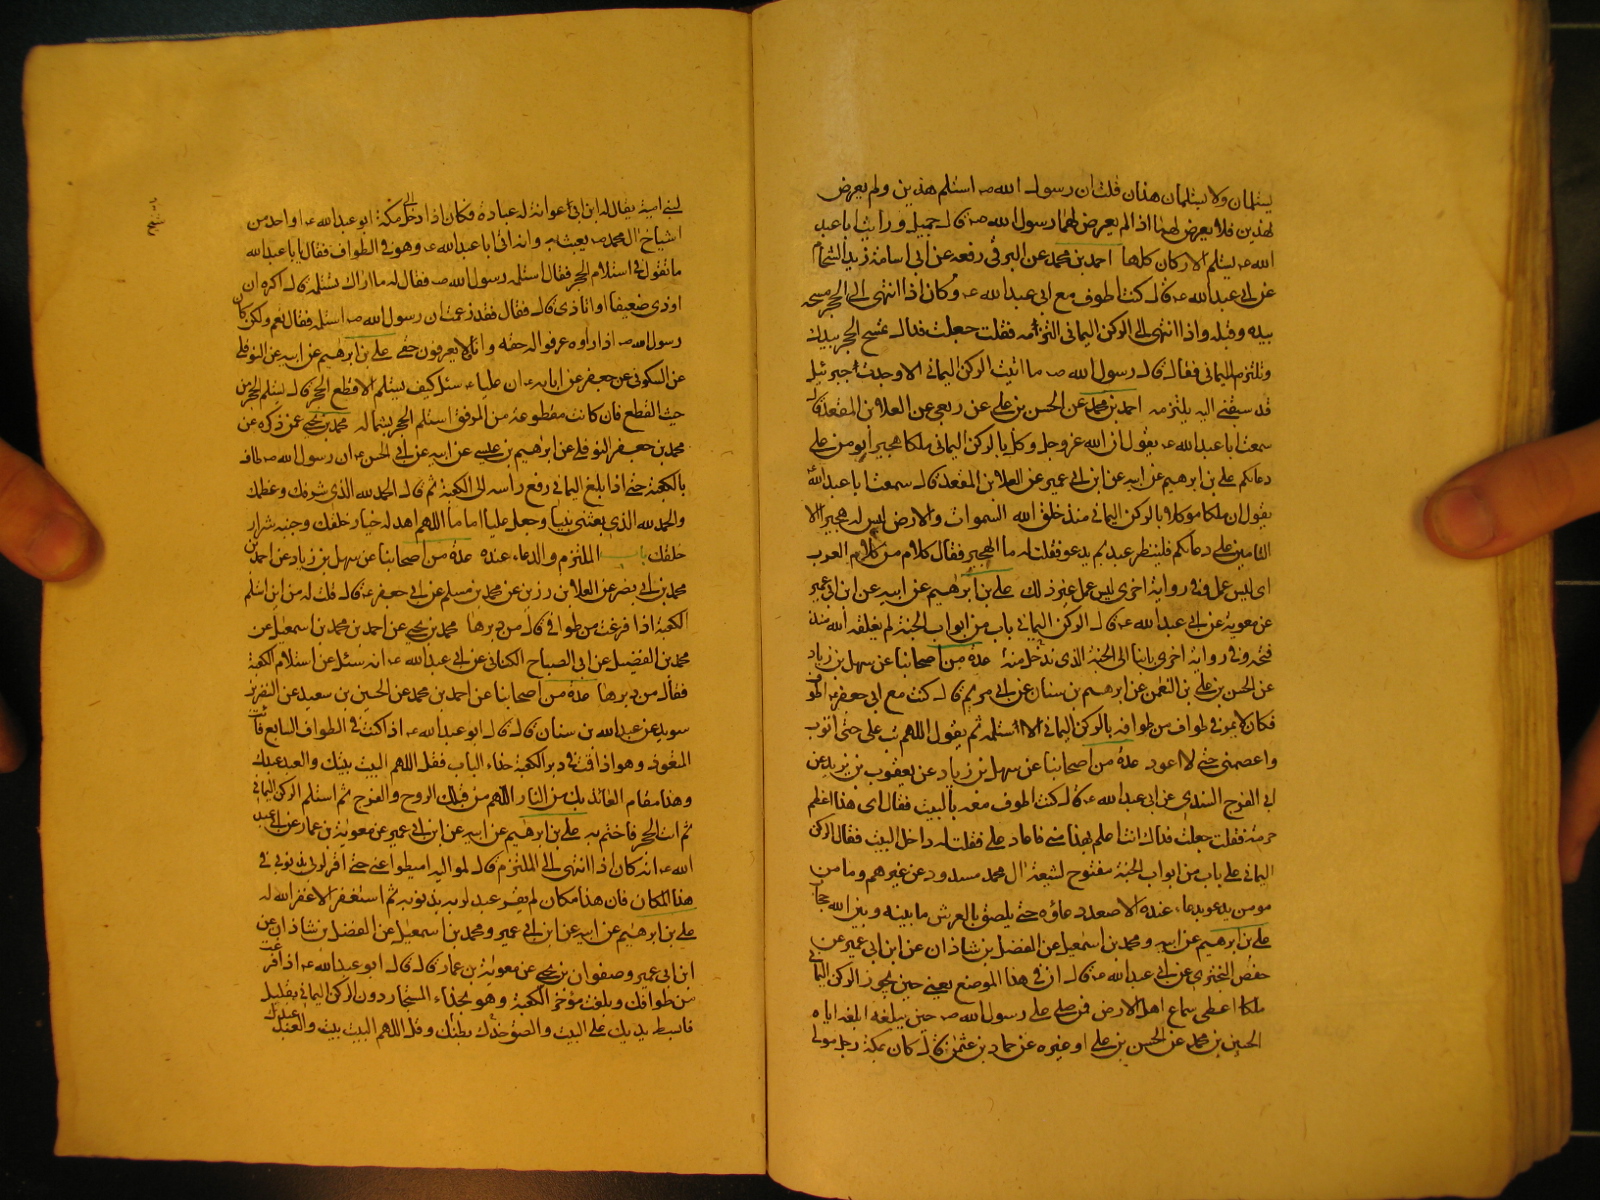 يستلمان ولا يستلمان هذان قلت ان رسول الله ص استلم هذين ولم يعرض
لهذين فلا يعرض لهما اذ الم يعرض لهما رسول الله ص قال جميل ورايت اباعبد
الله ع يستلم الاركان كلها احمد بن محمد عن البرقي رفعه عن ابي اسامة زيد الشحام
عن ابي عبدالله ع قال كنت اطوف مع ابي عبدالله ع وكان اذا انتهى الى الحجر مسحه
بيده وقبله واذا انتهى الى الركن اليماني التزمه فقلت جعلت فداك تمسح الحجر بيدك
وتلتزم اليماني فقال قال رسول الله ص ما اتيت الركن اليماني الا وجدت جبرئيل
قد سبقني اليه يلتزمه احمد بن محمد عن الحسن بن علي عن ربعي عن العلا بن المقعد قال
سمعت اباعبدالله ع يقول ان الله عز وجل وكل بالركن اليماني ملكا هجيرا يومن على
دعائكم علي بن ابرهيم عن ابيه عن ابن ابي عمير عن العلا بن المقعد قال سمعت اباعبدالله
يقول ان ملكا موكلا بالركن اليماني منذ خلق الله السموات والارض ليس له هجير الا
التامين على دعائكم فلينظر عبد بم يدعو فقلت له ما الهجير فقال كلام من كلام العرب
اي ليس عمل وفي رواية اخرى ليس عمل غير ذلك علي بن ابرهيم عن ابيه عن ابن ابي عمير
عن معوية عن ابي عبدالله ع قال الركن اليماني باب من ابواب الجنة لم يغلقه الله منذ
فتحه وفي رواية اخرى بابنا الى الجنة الذي ندخل منه عدة من اصحابنا عن سهل بن زياد
عن الحسن بن علي بن النعمن عن ابرهيم بن سنان عن ابي مريم قال كنت مع ابي جعفر ع اطوف
فكان لا يمر في طواف من طوافه بالركن اليماني الا استلمه ثم يقول اللهم تب على حتى اتوب
واعصمني حتى لا اعود عدة من اصحابنا عن سهل بن زياد عن يعقوب بن يزيد عن
ابي الفرج السندي عن ابي عبدالله ع قال كنت اطوف معه بالبيت فقال اي هذا اعظم
حرمة فقلت جعلت فداك انت اعلم بهذا مني فاعاد على فقلت له داخل البيت فقال الركن
اليماني على باب من ابواب الجنة مفتوح لشيعة ال محمد مسدود عن غيرهم وما من
مومن يدعو بدعاء عنده الا صعد دعاؤه حتى يلصق بالعرش ما بينه وبين الله حجاب
علي بن ابرهيم عن ابيه ومحمد بن اسمعيل عن الفضل بن شاذان عن ابن ابي عمير عن
حفص البختري عن ابي عبدالله ع قال ان في هذا الموضع يعني حين يجوز الركن اليماني
ملكا اعطى سماع اهل الارض فمن صلى على رسول الله ص حين يبلغه ابلغه اياه
الحسين بن محمد عن الحسن بن علي او غيره عن حماد بن عثمن قال كان بمكة رجل مولى
لبني امية يقال له ابن ابي عوانة له عبادة فكان اذا دخل الى مكة ابوعبدالله ع او احد من
اشياخ ال محمد ص يعبث به وانه اتى اباعبدالله ع وهو في الطواف فقال يابا عبدالله
ما تقول في استلام الحجر فقال استلمه رسول الله ص فقال له ما اراك تستلمه قال اكره ان
اوذي ضعيفا او اتاذى قال فقال فقد زعمت ان رسول الله ص استلمه فقال نعم ولكن كان
رسول الله ص اذا راوه عرفوا له حقه وانا لا يعرفون حقي علي بن ابرهيم عن ابيه عن النوفلي
عن السكوني عن جعفر عن ابائه ع ان عليا ع سئل كيف يستلم الاقطع الحجر قال يستلم الحجر من
حيث القطع فان كانت مقطوعة من المرفق استلم الحجر بشماله محمد بن يحيى عمن ذكره عن
محمد بن جعفر النوفلي عن ابرهيم بن عيسى عن ابيه عن ابي الحسن ع ان رسول الله ص طاف
بالكعبة حتى اذا بلغ اليماني رفع راسه الى الكعبة ثم قال الحمد لله الذي شرفك وعظمك
والحمد لله الذي بعثني نبيا وجعل عليا اماما اللهم اهد له خيار خلقك وجنبه شرار
خلقك باب الملتزم والدعاء عنده عدة من اصحابنا عن سهل بن زياد عن احمد بن
محمد بن ابي نصر عن العلا بن رزين عن محمد بن مسلم عن ابي جعفر ع قال قلت له من اين استلم
الكعبة اذا فرغت من طوافي قال من دبرها محمد بن يحيى عن احمد بن محمد بن اسمعيل عن
محمد بن الفضيل عن ابي الصباح الكناني عن ابي عبدالله ع انه سئل عن استلام الكعبة
فقال من دبرها عدة من اصحابنا عن احمد بن محمد عن الحسين بن سعيد عن النضر بن
سويد عن عبدالله بن سنان قال قال ابوعبدالله ع اذا كنت في الطواف السابع فات
المتعوذ وهو اذا قمت في دبر الكعبة حذاء الباب فقل اللهم البيت بيتك والعبد عبدك
وهذا مقام العائذ بك من النار اللهم من قبلك الروح والفرج ثم استلم الركن اليماني
ثم ات الحجر فاختم به علي بن ابرهيم عن ابيه عن ابن ابي عمير عن معوية بن عمار عن ابي عبد
الله ع انه كان اذا انتهى الى الملتزم قال لمواليه اميطوا عني حتى اقر لربي بذنوبي في
هذا المكان فان هذا مكان لم يقر عبد لربه بذنوبه ثم استغفر الا غفر الله له
علي بن ابرهيم عن ابيه عن ابن ابي عمير ومحمد بن اسمعيل عن الفضل بن شاذان عن
ابن ابي عمير وصفوان بن يحيى عن معوية بن عمار قال قال ابوعبدالله ع اذا فرغت
من طوافك وبلغت مؤخر الكعبة وهو بحذاء المستجار دون الركن اليماني بقليل
فابسط يديك على البيت والصق خدك بطنك وقل اللهم البيت بيتك والعبد عبدك